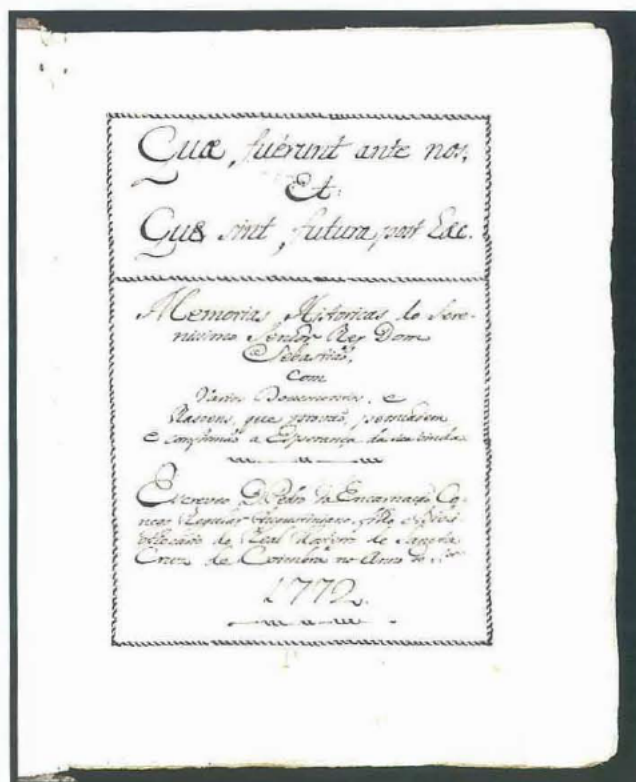 Quæ, fuérunt ante nos,
Et
Quæ sint, futura, post hæc.
Memorias Historicas do Sere-
nissimo Senhor Rey Dom
Sebastiaõ,
Com
Varios Documentos, e
Rasoens, que provaõ, persuadem
e confirmaõ a Esperança da sua vinda.
Escreveo D. Pedro da Encarnaçaõ Co-
nego Regular Augustiniano, filho e
do Real Mosteiro de Sancta
Cruz de Coimbra no Anno de
1772.